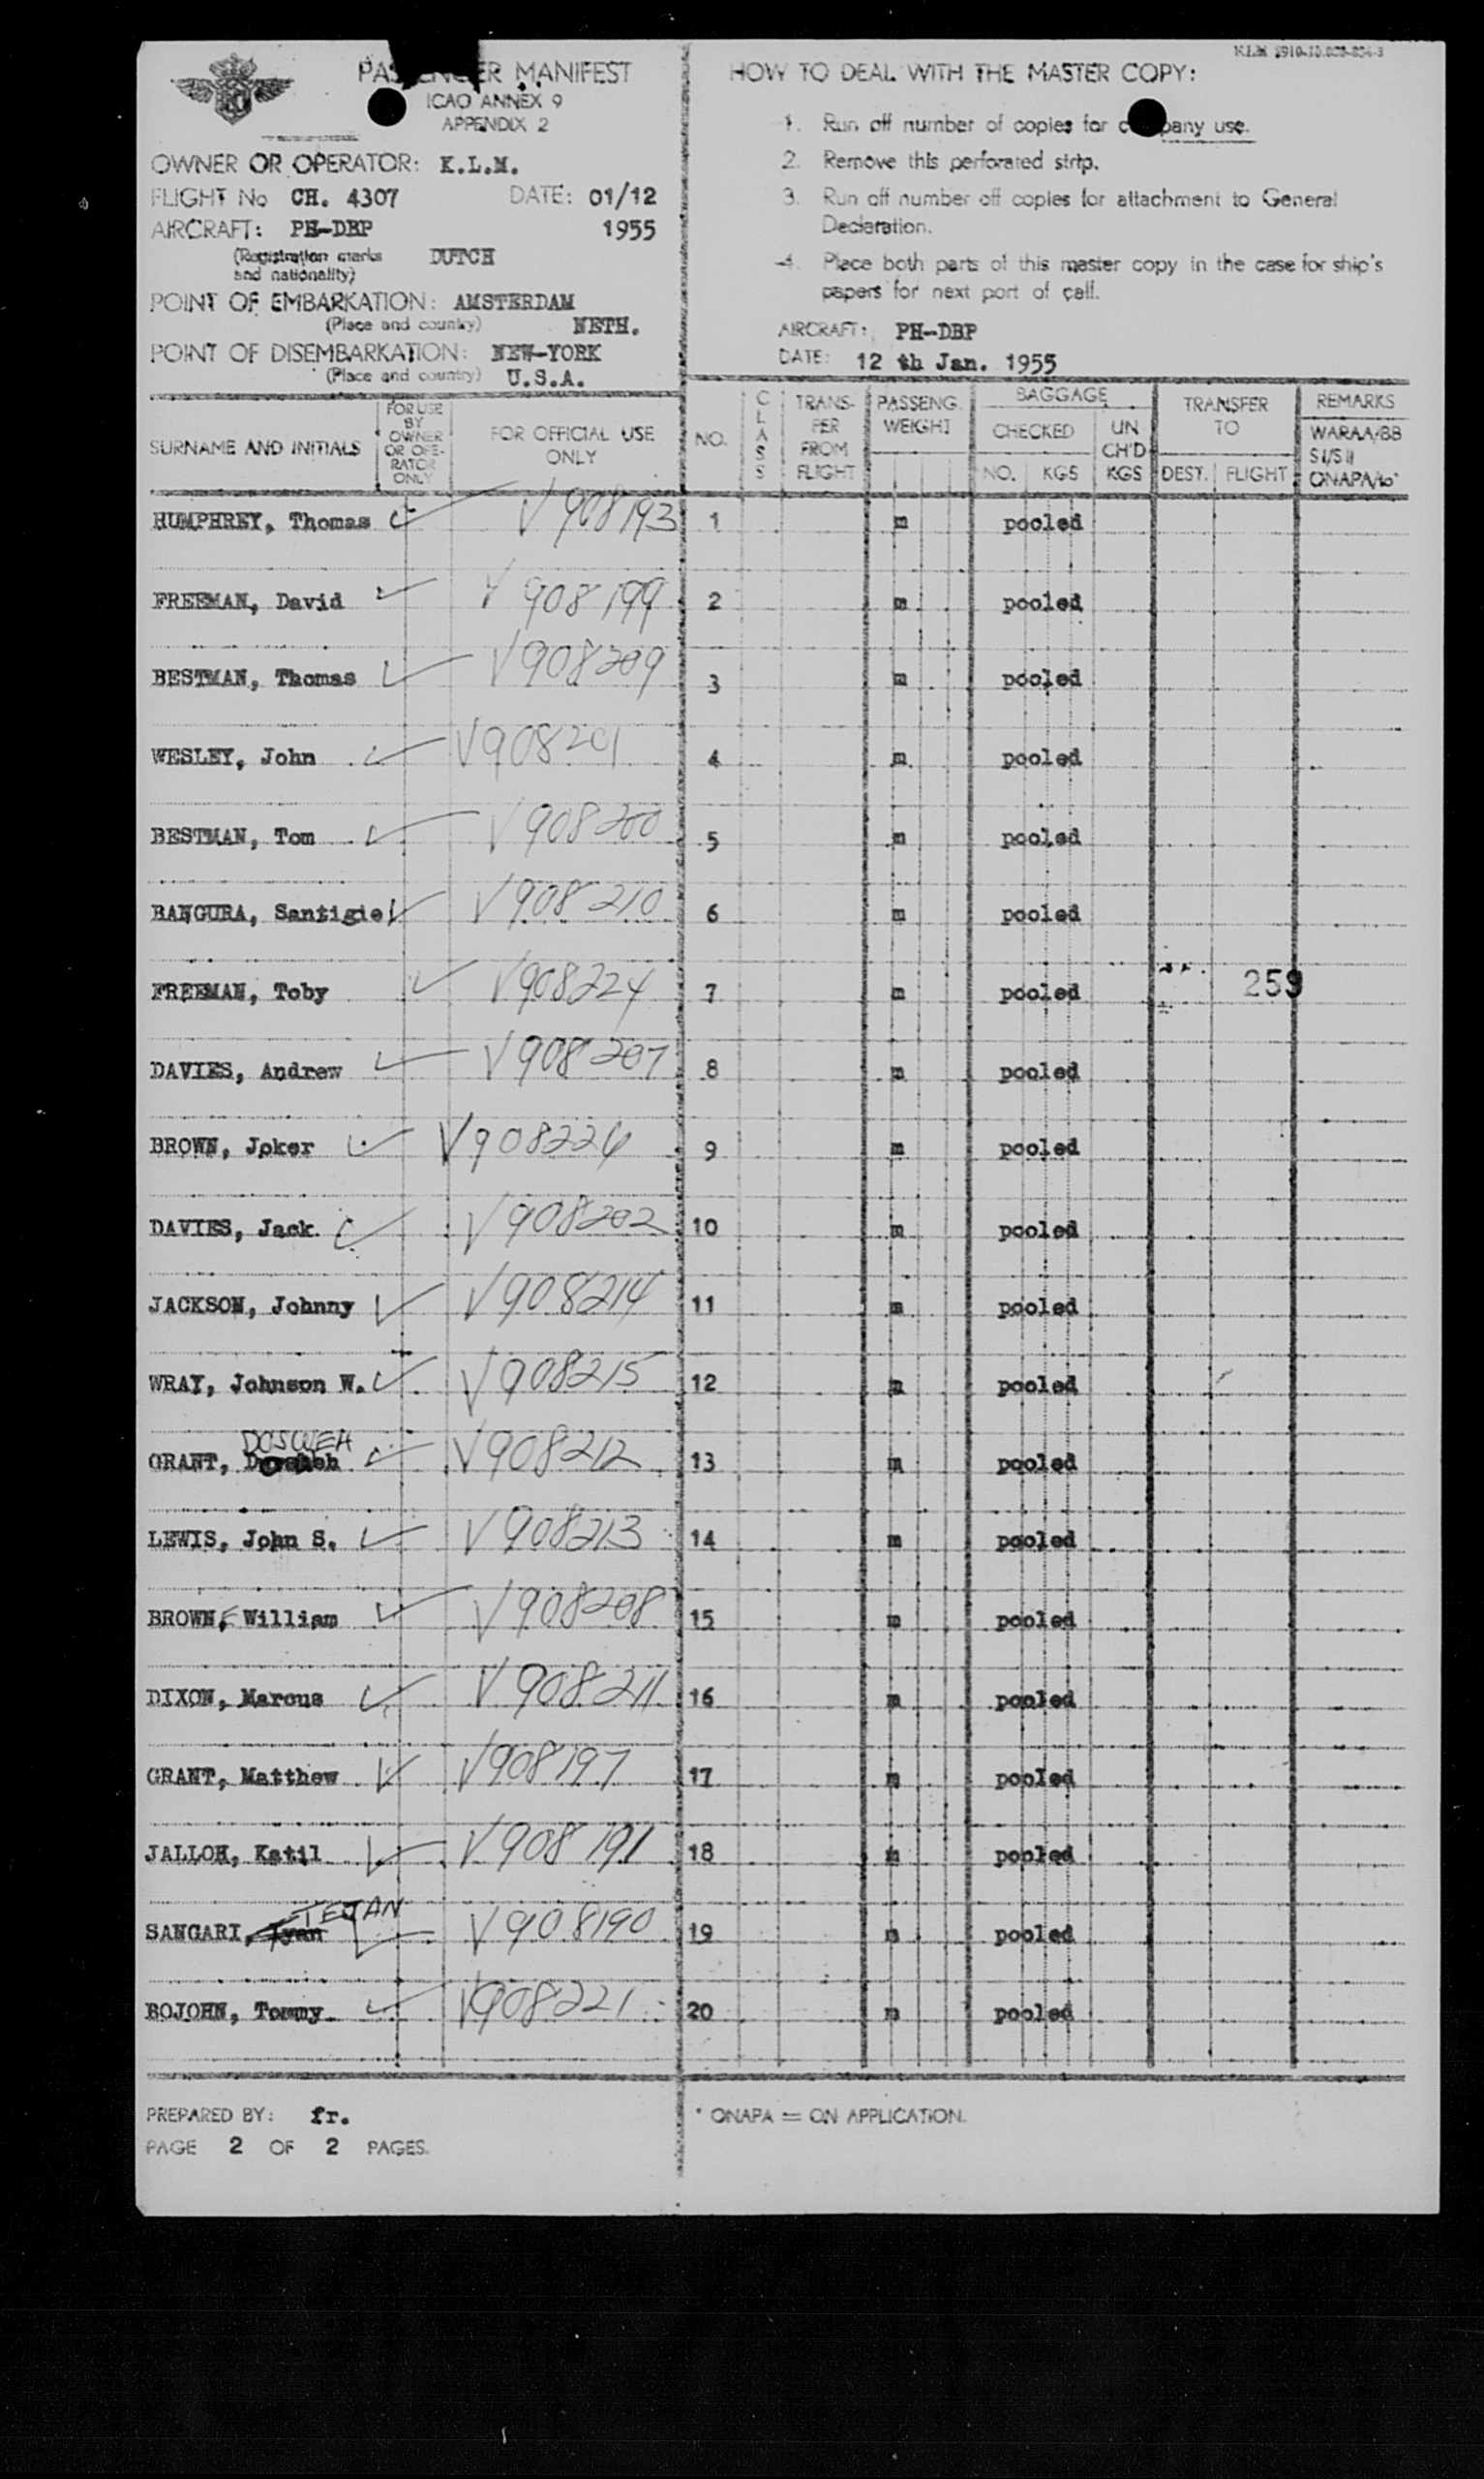 KLM 2910-10.000-854-3
PASSENGER MANIFEST
ICAO ANNEX 9
APPENDIX 2
OWNER OR OPERATOR: K.L.M.
FLIGHT No CH. 4307 DATE: 01/12
AIRCRAFT: PH-DBP 1955
(Registration marks DUTCH
and nationality)
POINT OF EMBARKATION: AMSTERDAM
(Place and country) NETH.
POINT OF DISEMBARKATION: NEW-YORK
(Place and country) U.S.A.
HOW TO DEAL WITH THE MASTER COPY:
1. Run off number of copies for company use.
2. Remove this perforated strip.
3. Run off number off copies for attachment to General
Declaration.
4. Place both parts of this master copy in the case for ship's
papers for next port of call.
AIRCRAFT: PH-DBP
DATE: 12 th Jan. 1955
SURNAME AND INITIALS
FOR USE
BY
OWNER
OR OPE-
RATOR
ONLY
FOR OFFICIAL USE
ONLY
NO.
CLASS
TRANS-
FER
FROM
FLIGHT
PASSENG.
WEIGHT
BAGGAGE
CHECKED
NO. KGS
UN
CH'D
KGS
TRANSFER
TO
DEST. FLIGHT
REMARKS
WARAA/BB
SI/SII
ONAPA/to*
HUMPHREY, Thomas V908193 1 m pooled
FREEMAN, David V908199 2 m pooled
BESTMAN, Thomas V908209 3 m pooled
WESLEY, John V908201 4 m pooled
BESTMAN, Tom V908200 5 m pooled
BANGURA, Santigie V908210 6 m pooled
FREEMAN, Toby V908224 7 m pooled 259
DAVIES, Andrew V908207 8 m pooled
BROWN, Joker V908226 9 m pooled
DAVIES, Jack. V908202 10 m pooled
JACKSON, Johnny V908214 11 m pooled
WRAY, Johnson W. V908215 12 m pooled
DOSWEH
GRANT, V908212 13 m pooled
LEWIS, John S. V908213 14 m pooled
BROWN, William V908208 15 m pooled
DIXON, Marcus V908211 16 m pooled
GRANT, Matthew V908197 17 m pooled
JALLOH, Katil V908191 18 m pooled
TEJAN
SANGARI, Tyan V908190 19 m pooled
BOJOHN, Tommy. V908221 20 m pooled
PREPARED BY: fr.
PAGE 2 OF 2 PAGES.
* ONAPA = ON APPLICATION.